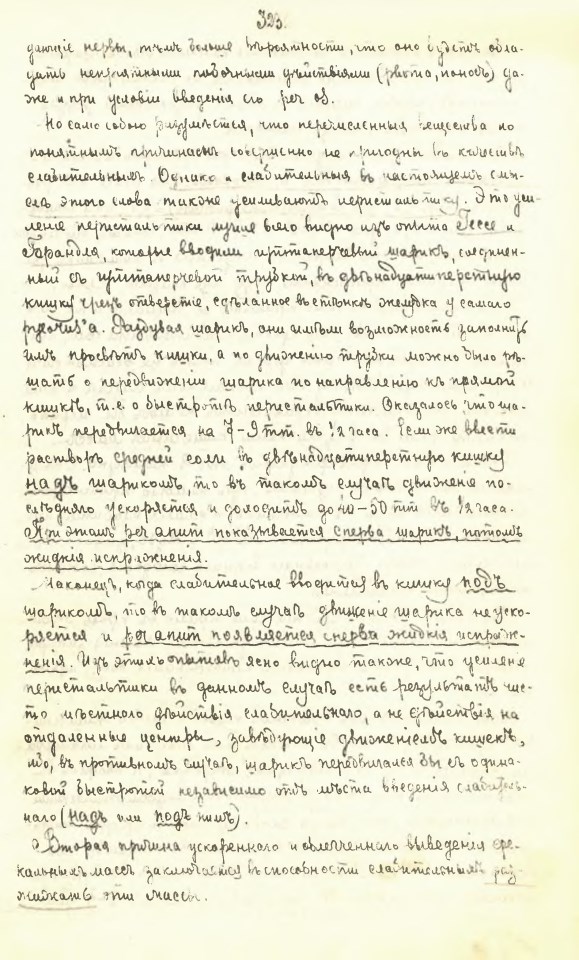 323.
дающіе нервы, тѣмъ больше вѣроятности, что оно будетъ обла-
дать непріятными побочными дѣйствіями (рвота, поносъ) да-
же и при условіи введенія его per os.
Но само собою разумѣется, что перечисленныя вещества по
понятнымъ причинамъ совершенно не пригодны въ качествѣ
слабительныхъ. Однако и слабительныя въ настоящемъ смы-
слѣ этого слова также усиливаютъ перистальтику. Это уси-
леніе перистальтики лучше всего видно изъ опыта Гессе и
Гарандля, которые вводили гуттаперчевый шарикъ, соединен-
ный съ гуттаперчевой трубкой, въ двѣнадцатиперстную
кишку чрезъ отверстіе, сдѣланное въ стѣнкѣ желудка у самаго
pylorus'а. Раздувая шарикъ, они имѣли возможность заполнить
имъ просвѣтъ кишки, а по движенію трубки можно было рѣ-
шать о передвиженіи шарика по направленію къ прямой
кишкѣ, т.е. о быстротѣ перистальтики. Оказалось что ша-
рикъ передвигается на 7-9 mm. въ ½ часа. Если же ввести
растворъ средней соли въ двѣнадцатиперстную кишку
надъ шарикомъ, то въ такомъ случаѣ движеніе по-
слѣдняго ускоряется и доходитъ до 40-50 mm въ ½ часа.
При этомъ per anum показывается сперва шарикъ, потомъ
жидкія испражненія.
Наконецъ, когда слабительное вводится въ кишку подъ
шарикомъ, то въ такомъ случаѣ движеніе шарика не уско-
ряется и per anum появляется сперва жидкія испраж-
ненія. Изъ этихъ опытовъ ясно видно также, что усиленіе
перистальтики въ данномъ случаѣ есть результатъ чис-
то мѣстнаго дѣйствія слабительнаго, а не дѣйствія на
отдаленные центры, завѣдующіе движеніемъ кишекъ,
ибо, въ противномъ случаѣ, шарикъ передвигался бы съ одина-
ковой быстротой независимо отъ мѣста введенія слабитель-
наго (надъ или подъ нимъ).
Вторая причина ускореннаго и облегченнаго выведенія фе-
кальныхъ массъ заключается въ способности слабительныхъ раз-
жижать эти массы.